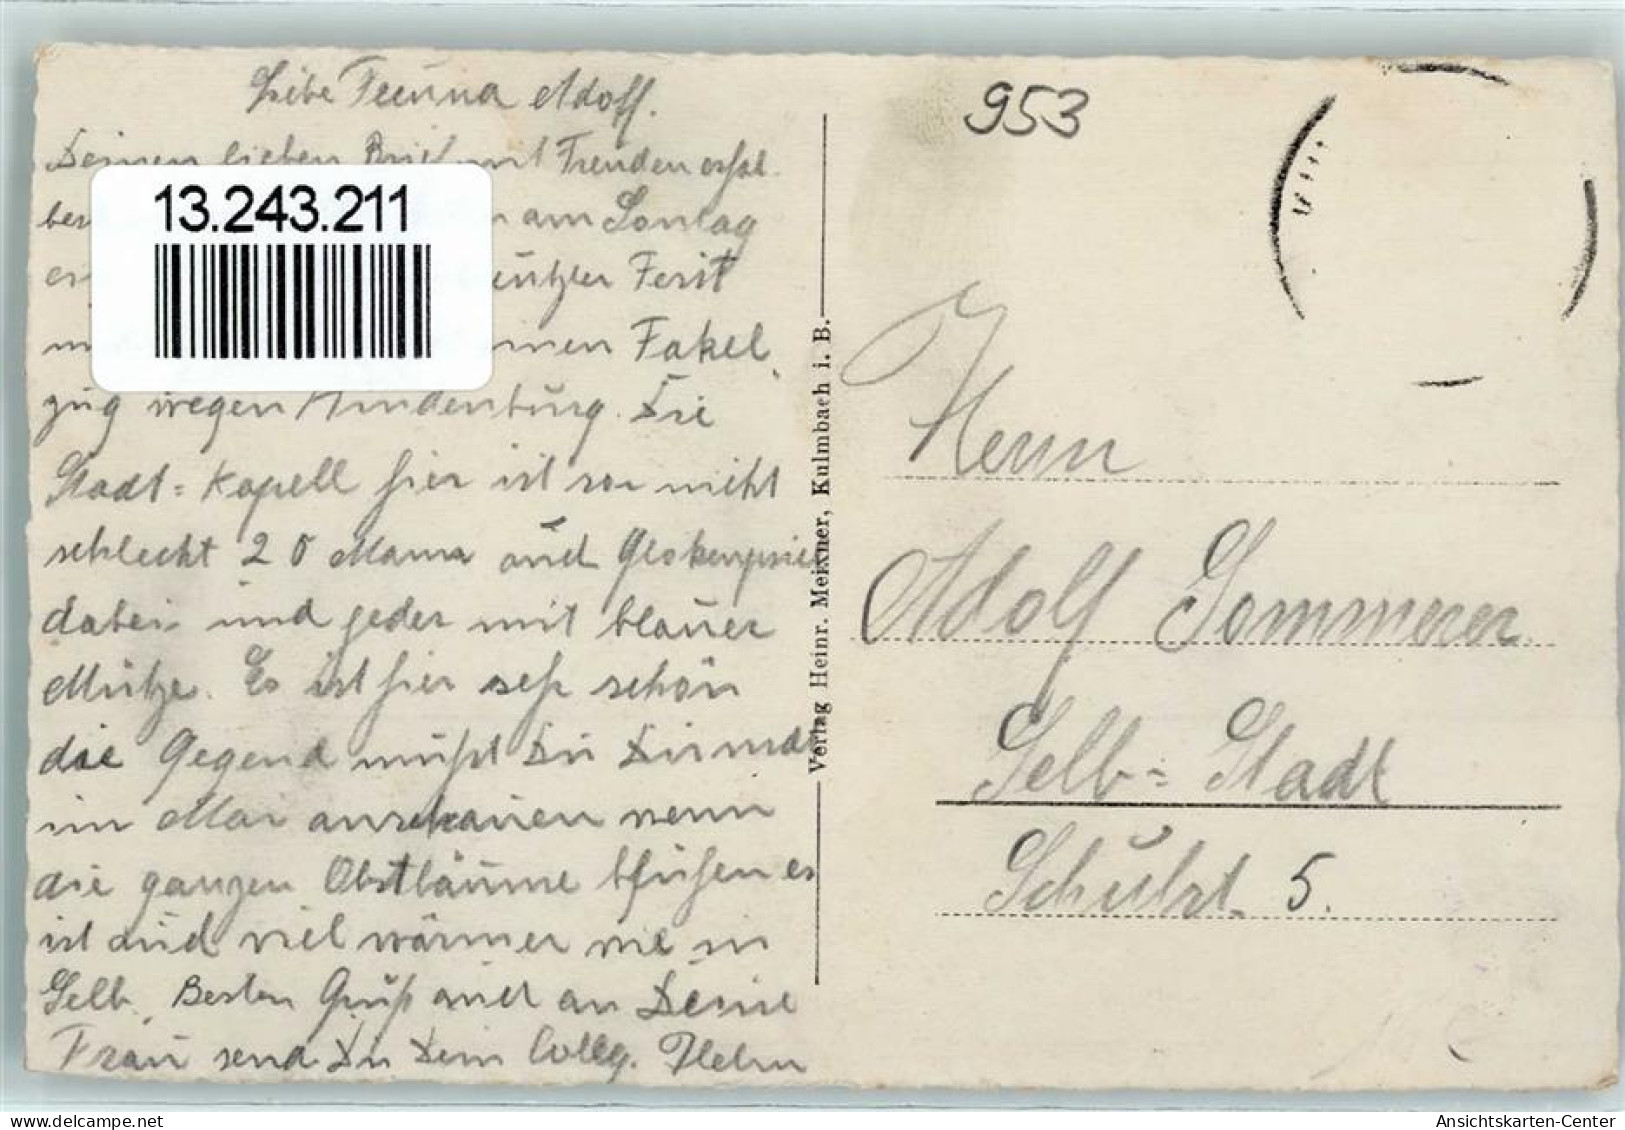 Liebe Freund Adolf.
Deinen lieben Brief mit Freuden erhal
am Sontag
Fest
einen Fakel
zug wegen Hindenburg. Die
Stadt=Kapell hier ist gar nicht
schlecht 20 Mann auch Glokenspiel
dabei und jeder mit blauer
Mütze. Es ist hier sehr schön
die Gegend mußt Du Dir
im Mai anschauen wenn
die ganzen Obstbäume blühen es
ist auch viel wärmer wie in
Selb. Besten Gruß auch an Deine
Frau send Du Dein Colleg.
13.243.211
953
Verlag Heinr. Meixner, Kulmbach i. B.
Herrn
Adolf Sommerer
Selb=Stadt
Schulst. 5.
Ansichtskarten-Center